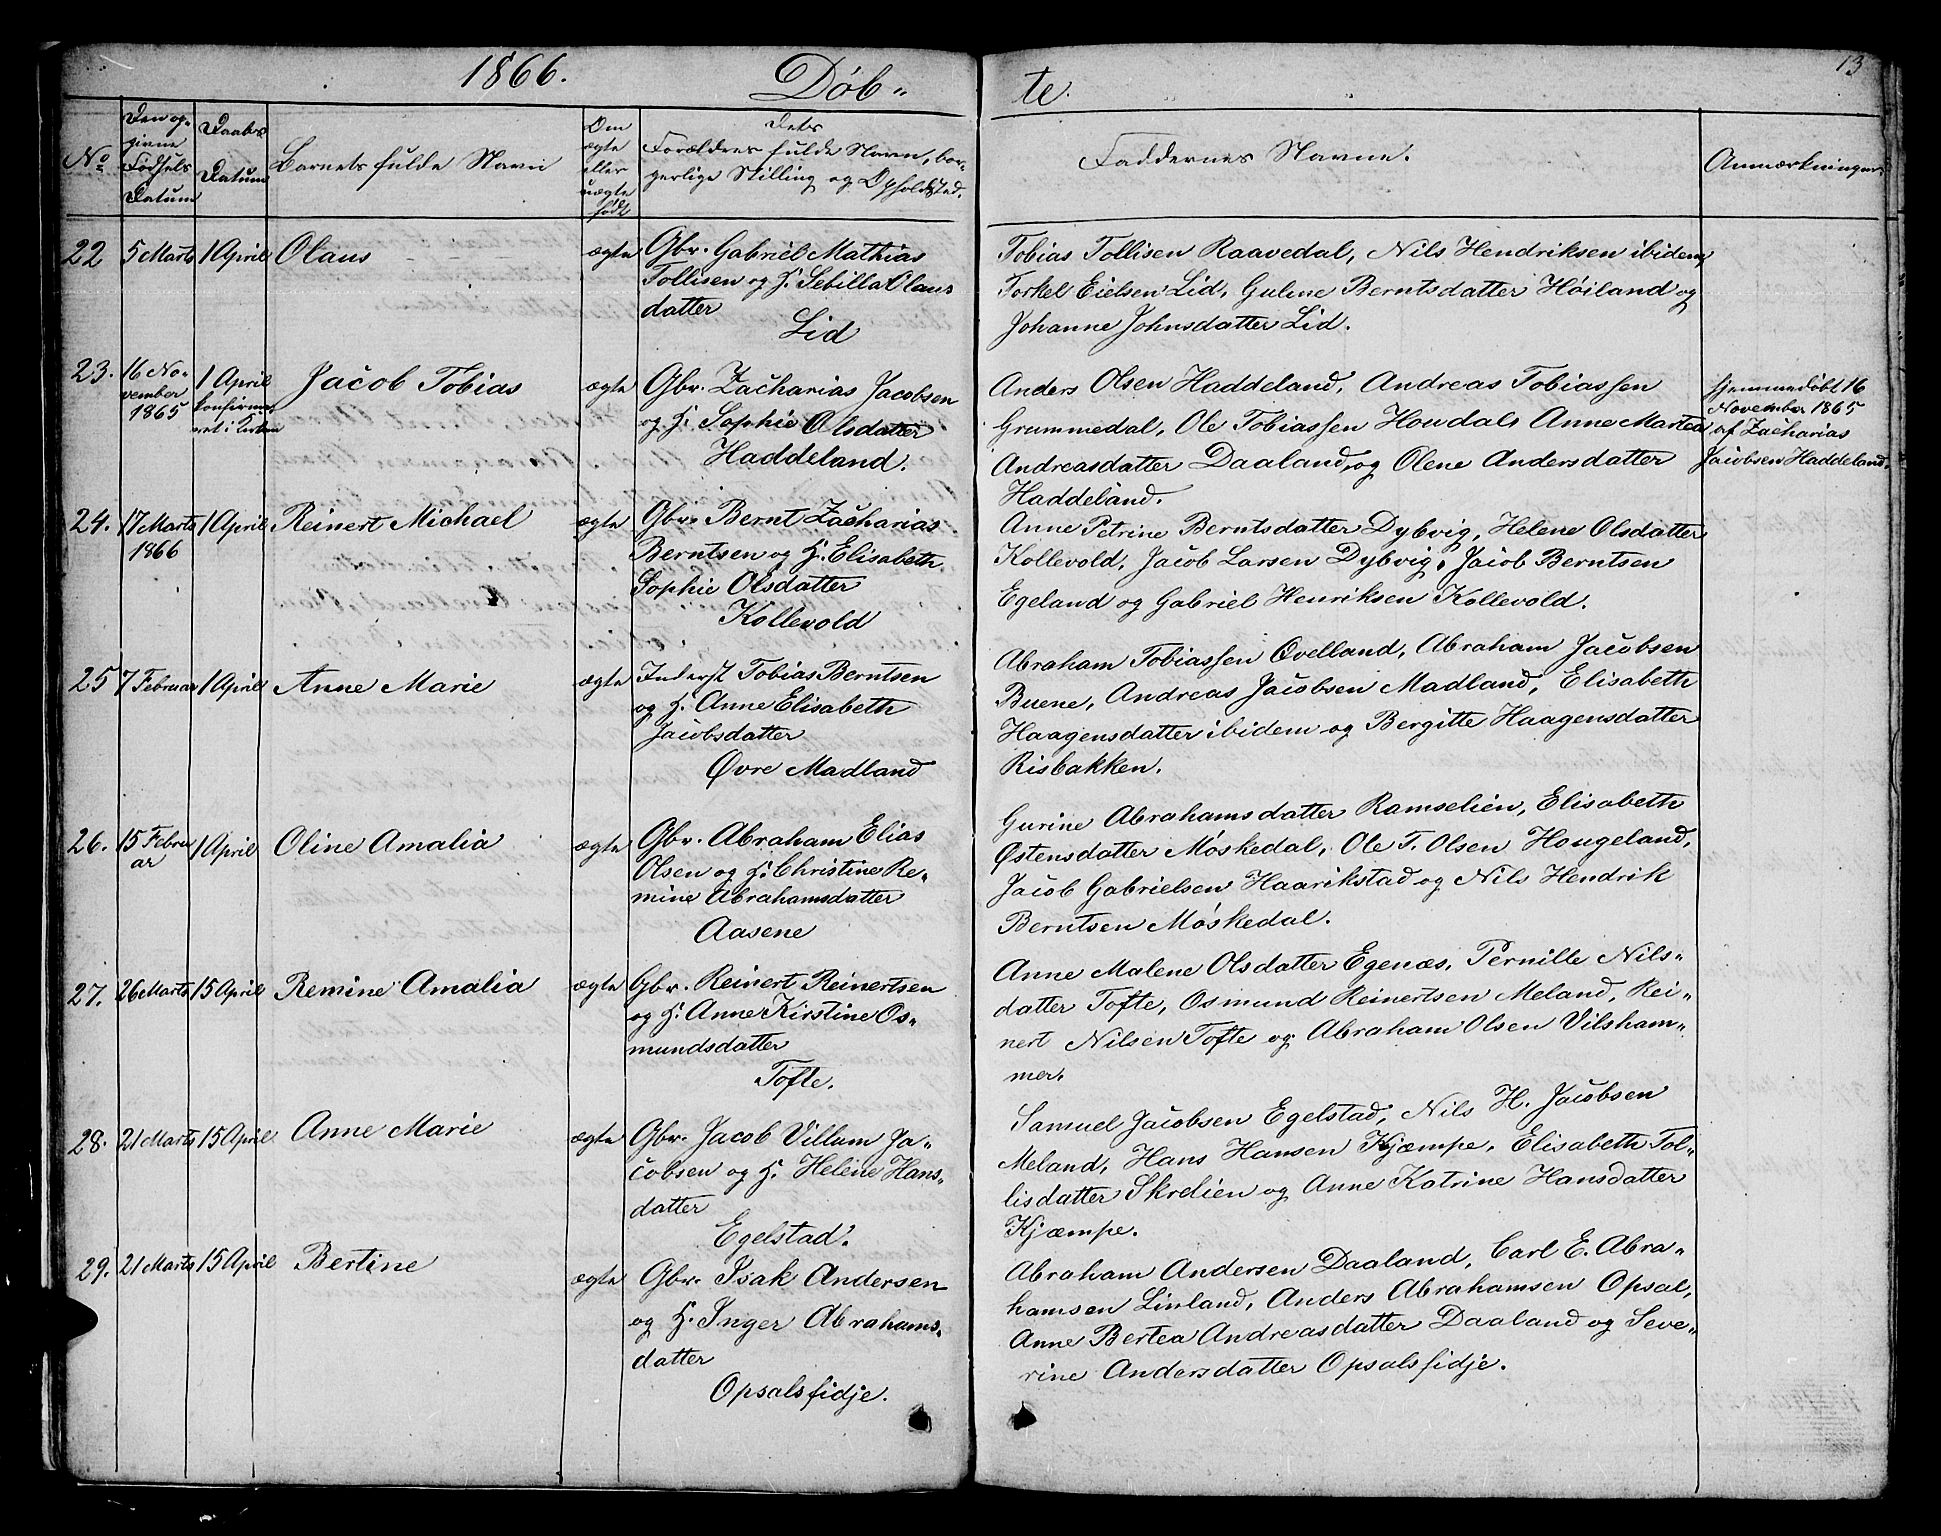 1866. Døb-
te. 13
No
Den op-
givne
Fødsels
Datum
Daabs
Datum
Barnets fulde Navn
Om
ægte
eller
uægte
født
Dets
Forældres fulde Navn, bor-
gerlige Stilling og Opholdsted.
Faddernes Navne.
Anmærkninger
22 5 Marts 1 April Olaus ægte
Gbr. Gabriel Mathias
Tollisen og H. Sebilla Olaus
datter
Lid
Tobias Tollisen Raavedal, Nils Hendriksen ibidem,
Torkel Eielsen Lid, Guline Berntsdatter Høiland og
Johanne Johnsdatter Lid.
23. 16 No-
vember
1865
1 April
konfirme-
ret i Kirken
Jacob Tobias ægte
Gbr. Zacharias Jacobsen
og H. Sophie Olsdatter
Haddeland.
Anders Olsen Haddeland, Andreas Tobiassen
Grummedal, Ole Tobiassen Houdal, Anne Martea
Andreasdatter Daaland, og Olene Andersdatter
Haddeland.
hjemmedøbt 16
November 1865
af Zacharias
Jacobsen Haddeland.
24. 17 Marts
1866
1 April Reinert Michael ægte
Gbr. Bernt Zacharias
Berntsen og H. Elisabeth
Sophie Olsdatter
Kollevold
Anne Petrine Berntsdatter Dybvig, Helene Olsdatter
Kollevold, Jacob Larsen Dybvig, Jacob Berntsen
Egeland og Gabriel Henriksen Kollevold.
25 7 Februar 1 April Anne Marie ægte
Inderst Tobias Berntsen
og H. Anne Elisabeth
Jacobsdatter
Øvre Madland
Abraham Tobiassen Ovelland, Abraham Jacobsen
Buene, Andreas Jacobsen Madland, Elisabeth
Haagensdatter ibidem og Bergitte Haagensdatter
Risbakken.
26. 15 Febru
ar
1 April Oline Amalia ægte
Gbr. Abraham Elias
Olsen og H. Christine Re-
mine Abrahamsdatter
Aasene
Gurine Abrahamsdatter Ramselien, Elisabeth
Østensdatter Møskedal, Ole T. Olsen Hougeland,
Jacob Gabrielsen Haarikstad og Nils Hendrik
Berntsen Møskedal.
27. 26 Marts 15 April Remine Amalia ægte
Gbr. Reinert Reinertsen
og H. Anne Kirstine Os-
mundsdatter
Tofte.
Anne Malene Olsdatter Egenæs, Pernille Nils-
datter Tofte, Osmund Reinertsen Meland, Rei-
nert Nilsen Tofte og Abraham Olsen Vilsham-
mer.
28. 21 Marts 15 April Anne Marie ægte
Gbr. Jacob Villum Ja-
cobsen og H. Helene Hans-
datter
Egelstad.
Samuel Jacobsen Egelstad, Nils H. Jacobsen
Meland, Hans Hansen Kjæmpe, Elisabeth Tol-
lisdatter Skrelien og Anne Katrine Hansdatter
Kjæmpe.
29. 21 Marts 15 April Bertine ægte
Gbr. Isak Andersen
og H. Inger Abrahams-
datter
Opsalsfidje.
Abraham Andersen Daaland, Carl E. Abra-
hamsen Linland, Anders Abrahamsen Opsal,
Anne Bertea Andreasdatter Daaland og Seve-
rine Andersdatter Opsalsfidje.